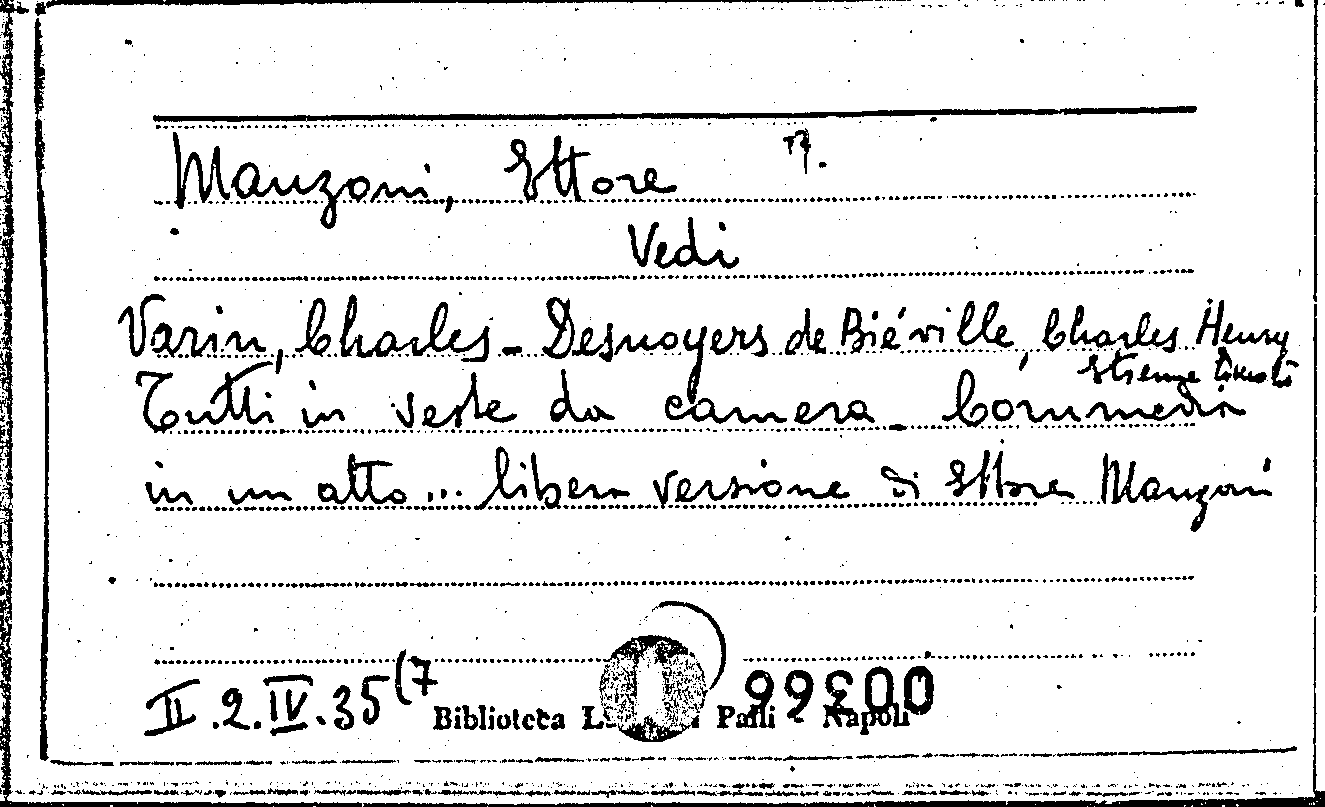 Manzoni, Ettore
Vedi
Varin, Charles - Desnoyers de Biéville, Charles Henry
Tutti in veste da camera - Commedia
in un atto... libera versione di Ettore Manzoni
II.2.IV.35(7
00366
Biblioteca L Palli - Napoli